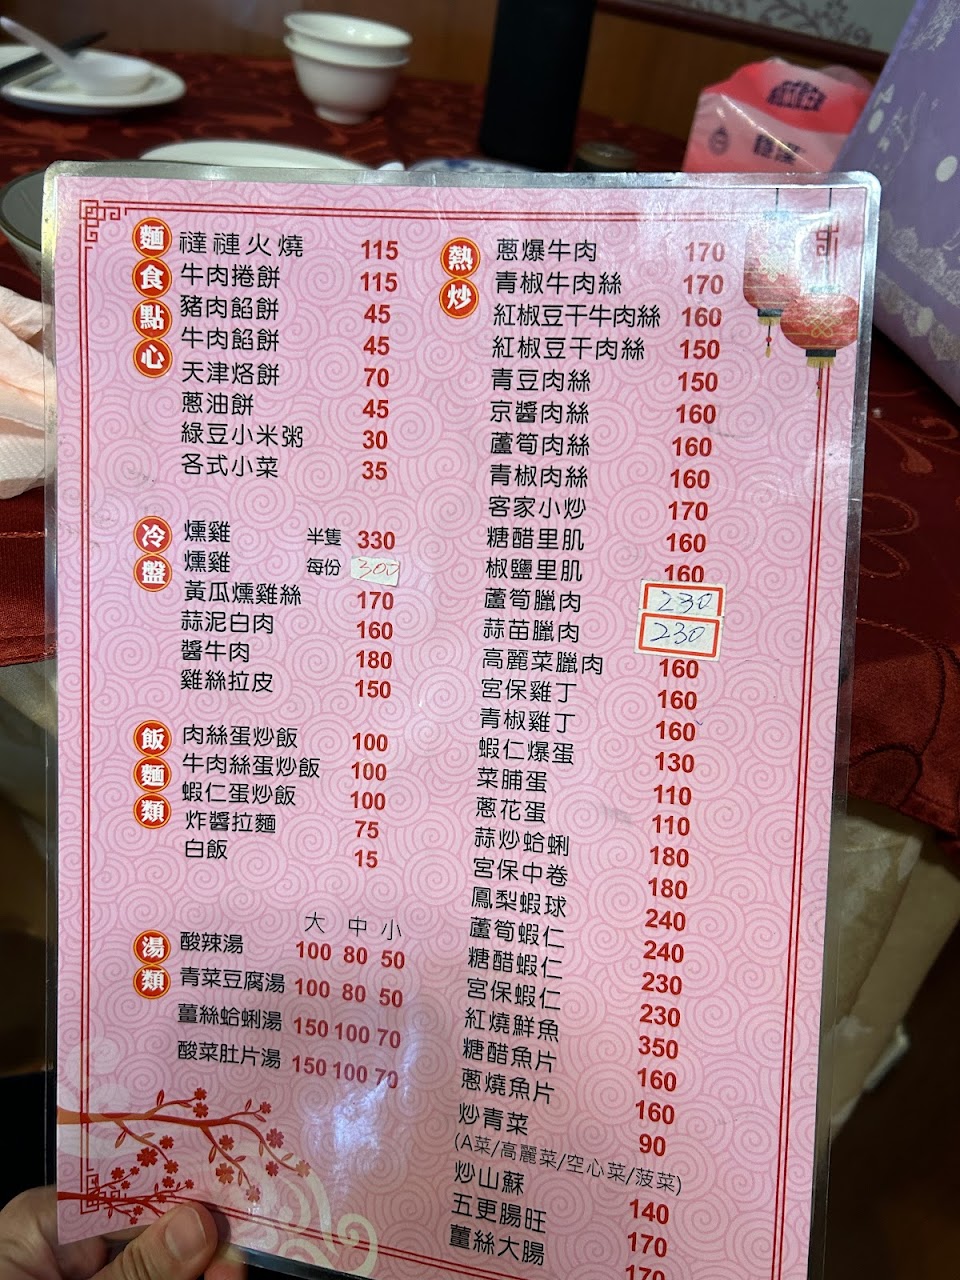 麵食點心
褡褳火燒 115
牛肉捲餅 115
豬肉餡餅 45
牛肉餡餅 45
天津烙餅 70
蔥油餅 45
綠豆小米粥 30
各式小菜 35
冷盤
燻雞 半隻 330
燻雞 每份 300
黃瓜燻雞絲 170
蒜泥白肉 160
醬牛肉 180
雞絲拉皮 150
飯麵類
肉絲蛋炒飯 100
牛肉絲蛋炒飯 100
蝦仁蛋炒飯 100
炸醬拉麵 75
白飯 15
湯類
大 中 小
酸辣湯 100 80 50
青菜豆腐湯 100 80 50
薑絲蛤蜊湯 150 100 70
酸菜肚片湯 150 100 70
熱炒
蔥爆牛肉 170
青椒牛肉絲 170
紅椒豆干牛肉絲 160
紅椒豆干肉絲 150
青豆肉絲 150
京醬肉絲 160
蘆筍肉絲 160
青椒肉絲 160
客家小炒 170
糖醋里肌 160
椒鹽里肌 160
蘆筍臘肉 230
蒜苗臘肉 230
高麗菜臘肉 160
宮保雞丁 160
青椒雞丁 160
蝦仁爆蛋 130
菜脯蛋 110
蔥花蛋 110
蒜炒蛤蜊 180
宮保中卷 180
鳳梨蝦球 240
蘆筍蝦仁 240
糖醋蝦仁 230
宮保蝦仁 230
紅燒鮮魚 350
糖醋魚片 160
蔥燒魚片 160
炒青菜 90
(A菜/高麗菜/空心菜/菠菜)
炒山蘇 140
五更腸旺 170
薑絲大腸 170